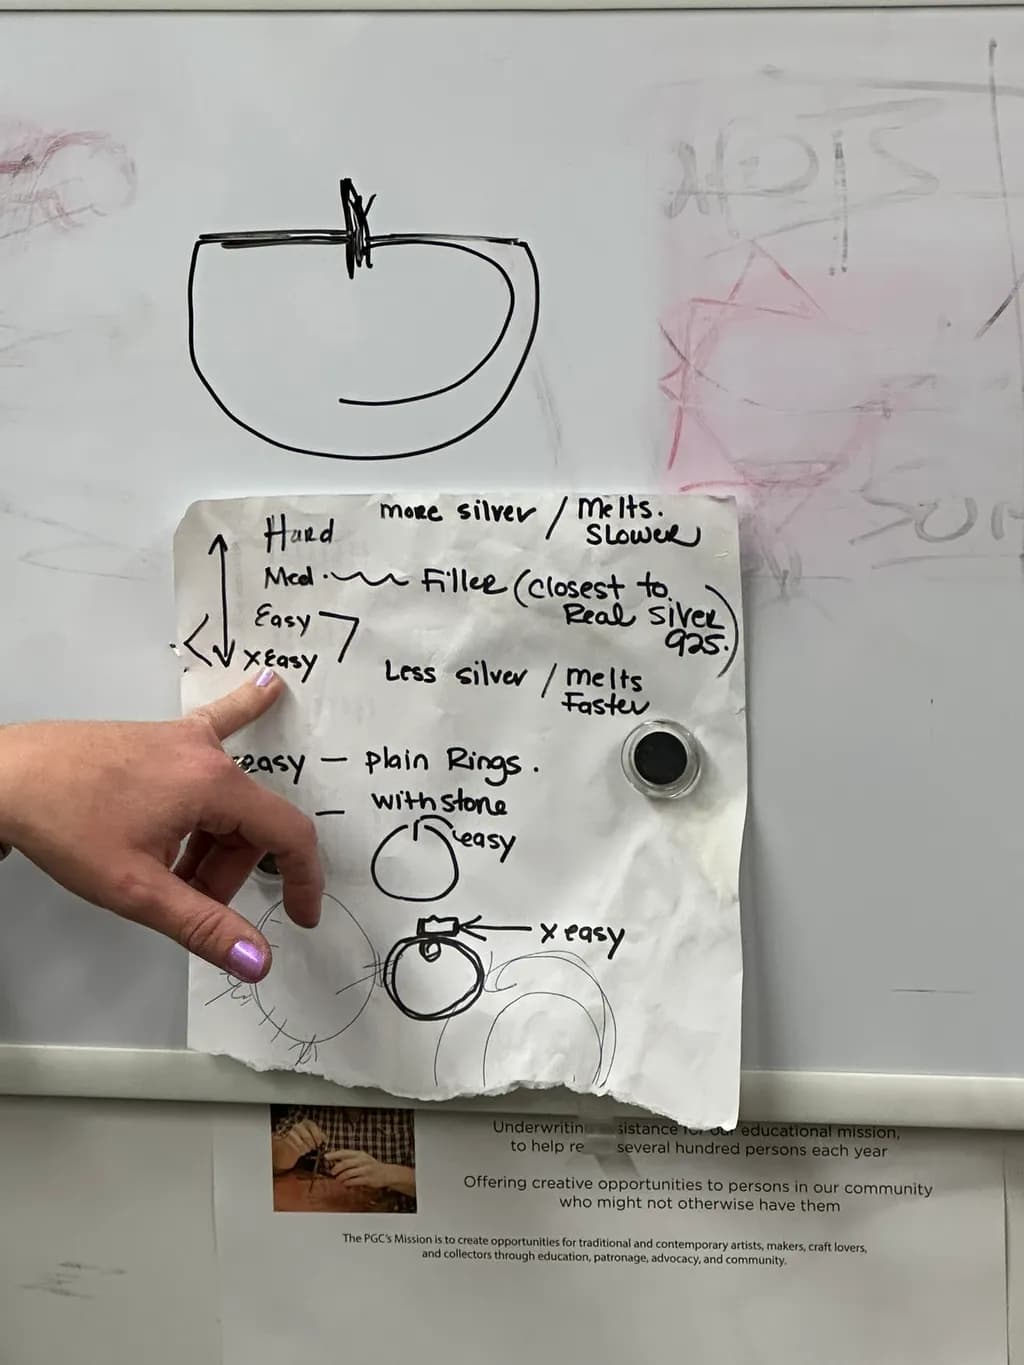 more silver / Melts.
Slower
Hard
Med. Filler (closest to
Real silver
925.)
Easy
XEasy
Less silver / melts
Faster
easy — plain Rings.
— with stone
easy
x easy
Underwriting
educational mission,
to help
several hundred persons each year
Offering creative opportunities to persons in our community
who might not otherwise have them
The PGC's Mission is to create opportunities for traditional and contemporary artists, makers, craft lovers,
and collectors through education, patronage, advocacy, and community.